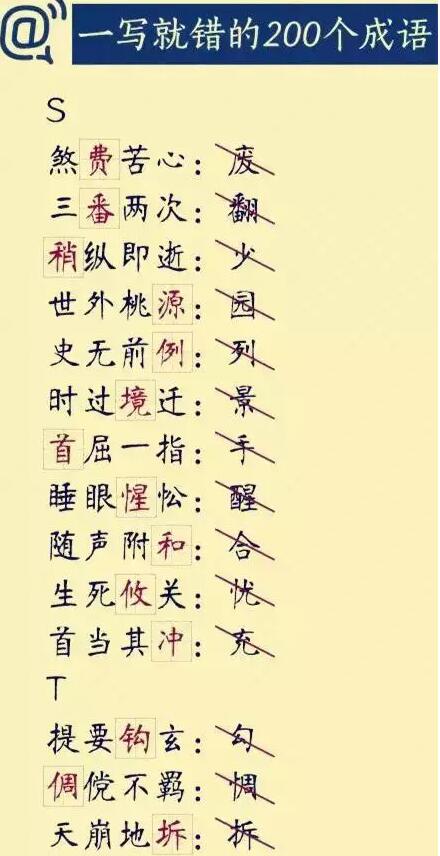 一写就错的200个成语
S
煞费苦心：废
三番两次：翻
稍纵即逝：少
世外桃源：园
史无前例：列
时过境迁：景
首屈一指：手
睡眼惺忪：醒
随声附和：合
生死攸关：忧
首当其冲：充
T
提要钩玄：勾
倜傥不羁：惆
天崩地坼：拆